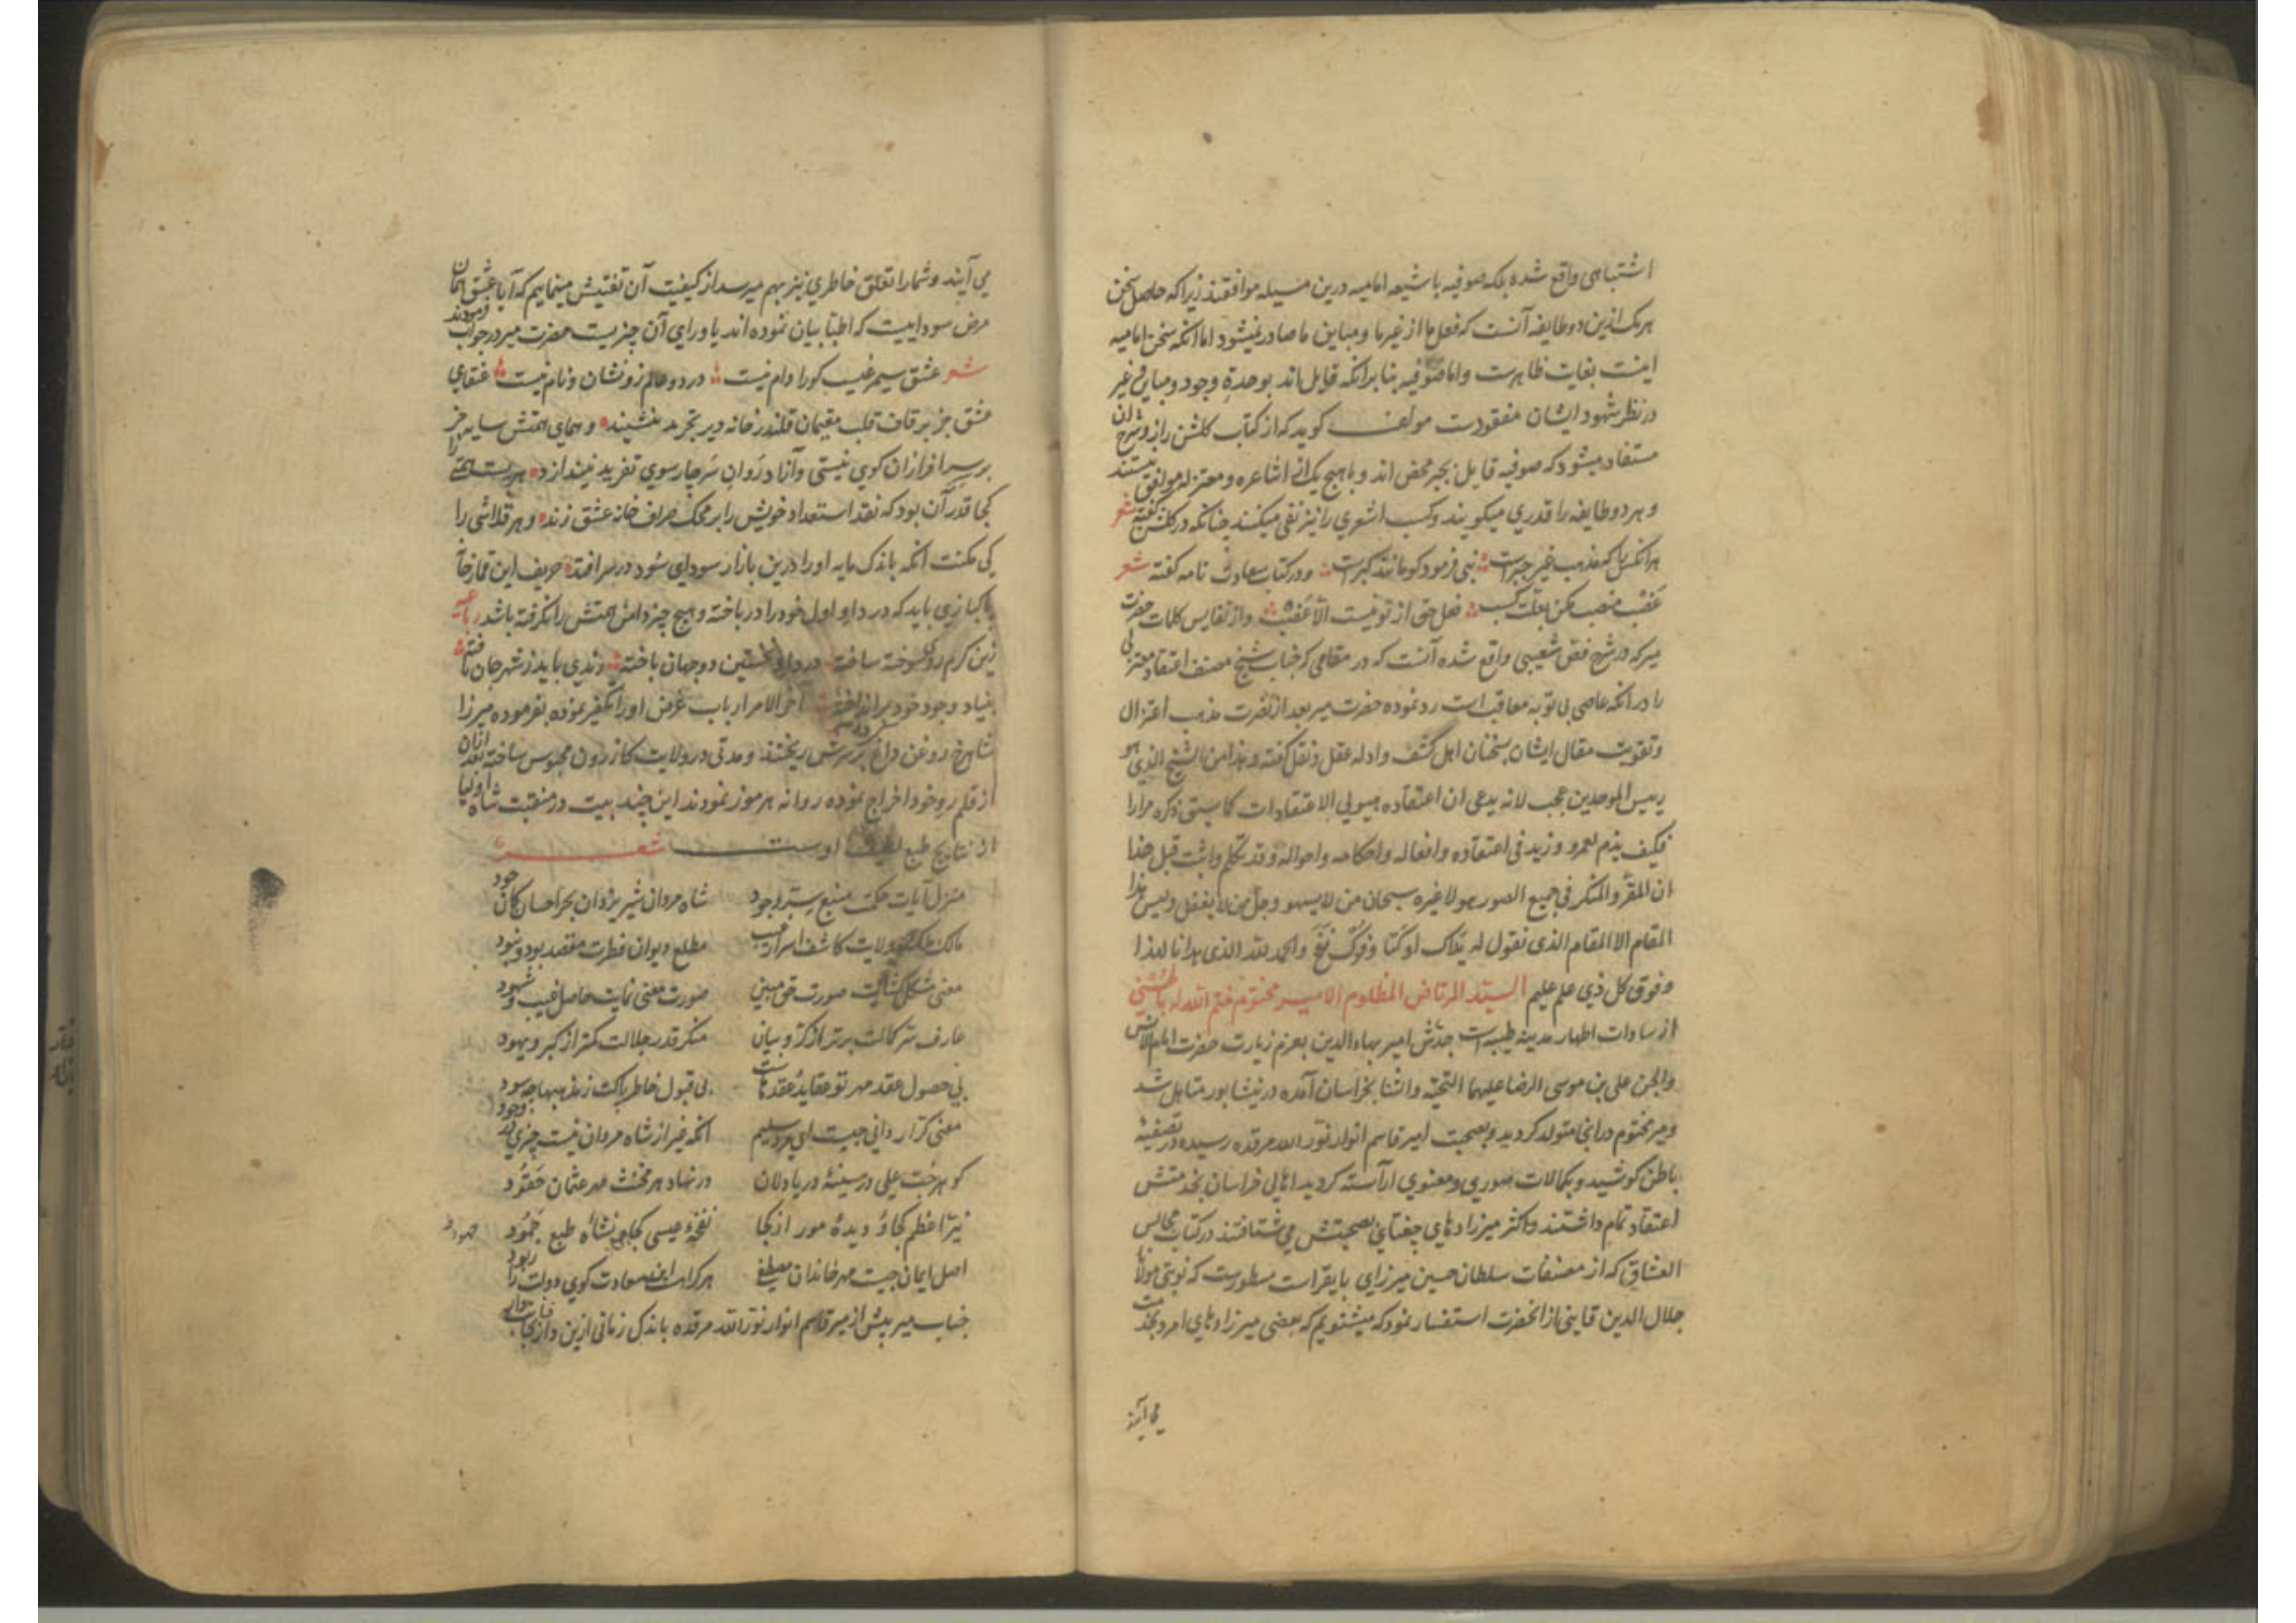 اشتباهی واقع شده بلکه صوفیه با شیعه امامیه درین مسیله موافقند زیرا که حاصل سخن
هر یک ازین دو طایفه آنست که فعل ما از غیر ما و مباین ما صادر نمیشود اما انکه سخن امامیه
اینست بغایت ظاهرست و اما صوفیه بنا بر انکه قایل اند بوحدة وجود و مباین و غیر
در نظر شهود ایشان مفقودست مولف کوید که از کتاب کلشن راز و شرح ان
مستفاد میشود که صوفیه قایل بجبر محض اند و با هیچ یک از اشاعره و معتزله موافق نیستند
و هر دو طایفه را قدری میکویند و کسب اشعری را نیز نفی میکنند چنانکه در کلشن کفته شعر
هرانکس را که مذهب غیر جبرست نبی فرمود کو مانند کبرست و در کتاب سعادت نامه کفته شعر
غصب منصب مکن بعلت کسب فعل حق از تو نیست الا غصب و از نفایس کلمات حضرت
میر که در شرح فص شعیبی واقع شده آنست که در مقامی که جناب شیخ مصنف اعتقاد معتزلی
را در انکه عاصی بی توبه معاقب است رد نموده حضرت میر بعد از نصرت مذهب اعتزال
و تقویت مقال ایشان بسخنان اهل کشف و ادله عقل و نقل کفته و هذا من الشیخ الذی هو
رییس الموحدین عجب لانه یدعی ان اعتقاده هیولی الاعتقادات کما سبق ذکره مرارا
فکیف یذم لعمرو و زید فی اعتقاده و افعاله و احکامه و احواله و قد تکلم و اثبت قبل هذا
ان المقر و المنکر فی جمیع الصور هو لا غیره سبحان من لا یسهو و جل من لا یغفل و لیس هذا
المقام الا المقام الذی نقول له یداک اوکتا و فوک نفخ و الحمد لله الذی هدانا لهذا
و فوق کل ذی علم علیم السید المرتاض المظلوم الامیر مختوم ختم الله له بالحسنی
از سادات اطهار مدینه طیبه است جدش امیر بهاء الدین بعزم زیارت حضرت امام الانس
والجن علی بن موسی الرضا علیهما التحیة و الثنا بخراسان آمده در نیشابور متاهل شد
و میر مختوم در انجا متولد کردید و بصحبت امیر قاسم انوار نور الله مرقده رسیده در تصفیه
باطن کوشید و بکمالات صوری و معنوی آراسته کردید اهالی خراسان بخدمتش
اعتقاد تمام داشتند و اکثر میرزادهای چغتای بصحبتش می شتافتند در کتاب مجالس
العشاق که از مصنفات سلطان حسین میرزای بایقراست مسطورست که نوبتی مولانا
جلال الدین قاینی از انحضرت استفسار نمود که میشنویم که بعضی میرزادهای امرد بخدمت
می آیند
می آیند و شما را تعلق خاطری نیز بهم میرسد از کیفیت آن تفتیش مینماییم که آیا عشق همان
مرض سوداییست که اطبا بیان نموده اند یا ورای آن چیزیست حضرت میر در جواب فرمودند
شعر عشق سیمرغیست کورا دام نیست در دو عالم زو نشان و نام نیست عنقای
عشق جز بر قاف قلب مقیمان قلندر خانه دیر تجرید ننشیند و همای همتش سایه جز
بر سر افرازان کوی نیستی و آزاد روان سر چار سوی تفرید نیندازد هر پست همتی را
کجا قدر آن بود که نقد استعداد خویش را بر محک صراف خانه عشق زند و هر قلاشی را
کی مکنت انکه باندک مایه اورا درین بازار سودای سود در سر افتد حریف این قمارخانه
پاکبازی باید که در داو اول خود را در باخته و هیچ چیز دامن همتش را نکرفته باشد رباعیه
زین کرم روی سوخته ساخته در داو نخستین دو جهان باخته رندی باید ز شهر جان تافته
بنیاد وجود خود برانداخته آخر الامر ارباب غرض اورا تکفیر نموده بفرموده میرزا
شاهرخ روغن داغ کرده بر سرش ریختند و مدتی در ولایت کازرون محبوس ساخته بعد ازان
از قلمرو خود اخراج نموده روانه هرموز نمودند این چند بیت در منقبت شاه اولیا
از نتایج طبع لطیف اوست شعر
منزل آیات حکمت منبع سر وجود شاه مردان شیر یزدان بحر احسان کان جود
مالک ملک ولایت کاشف اسرار غیب مطلع دیوان فطرت مقصد بود و نبود
معنی مشکل کشایت صورت حق مبین صورت معنی نمایت حاصل غیب و شهود
عارف سر کمالت برتر از کروبیان منکر قدر جلالت کمتر از کبر و یهود
بی حصول عقد مهر تو عقاید عقدهاست بی قبول خاطر پاکت ز مذهبها چه سود
معنی کرار دانی چیست ای مرد سلیم انکه غیر از شاه مردان نیست چیزی در وجود
کوهر حب علی در سینه دریادلان در نهاد هر مخنث مهر عثمان حقود
نیر اعظم کجا و دیده مور از کجا نفخه عیسی کجا و نشأه طبع جمود
اصل ایمان چیست مهر خاندان مصطفی هر کراست این سعادت کوی دولت را ربود
جناب میر پیش از میر قاسم انوار نور الله مرقده باندک زمانی ازین دار